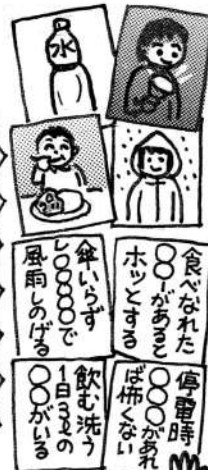 水
食べなれた
○○ーがあると
ホッとする
傘いらず
レ○○○○○で
風雨しのげる
停電時
○○○があれ
ば怖くない
飲む洗う
1日3ℓの
○○がいる